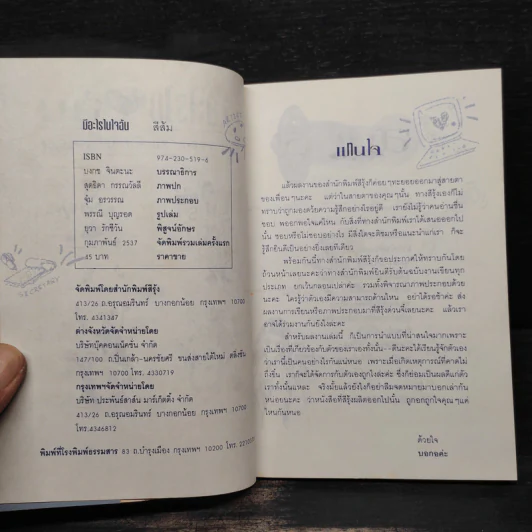 มีอะไรในใจฉัน สีส้ม
ISBN 974-230-519-6
บงกช จินตะนะ บรรณาธิการ
สุดธิดา กรรณวัลลี ภาพปก
จุ๋ม อรวรรณ ภาพประกอบ
พรรณี บุญรอด รูปเล่ม
ยุวา รักชีวัน พิสูจน์อักษร
กุมภาพันธ์ 2537 จัดพิมพ์รวมเล่มครั้งแรก
45 บาท ราคาขาย
จัดพิมพ์โดยสำนักพิมพ์สีรุ้ง
413/26 ถ.อรุณอมรินทร์ บางกอกน้อย กรุงเทพฯ 10700
โทร. 4341387
ต่างจังหวัดจัดจำหน่ายโดย
บริษัทบุ๊คคอนเน็คชั่น จำกัด
147/100 ถ.ปิ่นเกล้า-นครชัยศรี ขนส่งสายใต้ใหม่ ตลิ่งชัน
กรุงเทพฯ 10700 โทร.
กรุงเทพฯจัดจำหน่ายโดย
บริษัท ประพันธ์สาส์น มาร์เก็ตติ้ง จำกัด
413/26 ถ.อรุณอมรินทร์ บางกอกน้อย กรุงเทพฯ
โทร.4346812
พิมพ์ที่โรงพิมพ์ธรรมสาร 83 ถ.บำรุงเมือง กรุงเทพฯ 10200 โทร.
SECRETARY
แทนใจ
แล้วผลงานของสำนักพิมพ์สีรุ้งก็ค่อยๆทะยอยออกมาสู่สายตา
ของเพื่อนๆนะคะ แต่ว่าในสายตาของคุณๆนั้น ทางสีรุ้งเองก็ไม่
ทราบว่าถูกมองด้วยความรู้สึกอย่างไรอยู่ดี เรายังไม่รู้ว่าคนอ่านชื่น
ชอบ พออกพอใจแค่ไหน กับสิ่งที่ทางสำนักพิมพ์เราได้เสนอออกไป
นั้น ชอบหรือไม่ชอบอย่างไร มีสิ่งใดจะติชมหรือแนะนำแก่เรา ก็จะ
รู้สึกยินดีเป็นอย่างยิ่งเลยทีเดียว
พร้อมกันนี้ทางสำนักพิมพ์สีรุ้งก็ขอประกาศให้ทราบกันโดย
ถ้วนหน้าเลยนะคะว่าทางสำนักพิมพ์ยินดีรับต้นฉบับงานเขียนทุก
ประเภท ยกเว้นกลอนเปล่าค่ะ รวมทั้งพิจารณาภาพประกอบด้วย
นะคะ ใครรู้ว่าตัวเองมีความสามารถด้านไหน อย่าได้รอช้าค่ะ ส่ง
ผลงานการเขียนหรือภาพประกอบมาที่สีรุ้งด่วนจี๋เลยนะคะ แล้วเรา
อาจได้ร่วมงานกันยังไงล่ะคะ
สำหรับผลงานเล่มนี้ ก็เป็นการนำแบบที่น่าสนใจมากเพราะ
เป็นเรื่องที่เกี่ยวข้องกับตัวของเราเองทั้งนั้น
เรานี้เป็นคนอย่างไรกันแน่คะ เพราะเมื่อเกิดเหตุการณ์ที่คาดไม่
ถึงขึ้น เราก็จะได้จัดการกับตัวเองถูกไงล่ะคะ ซึ่งก็ย่อมเป็นผลดีแก่ตัว
เราทั้งนั้นแหละ จริงมั้ยแล้วยังไงก็อย่าลืมจดหมายมาบอกเล่ากัน
หน่อยนะคะ ว่าหนังสือที่สีรุ้งผลิตออกไปนั้น ถูกอกถูกใจคุณๆแค่
ไหนกันหนอ
ด้วยใจ
บอกอค่ะ